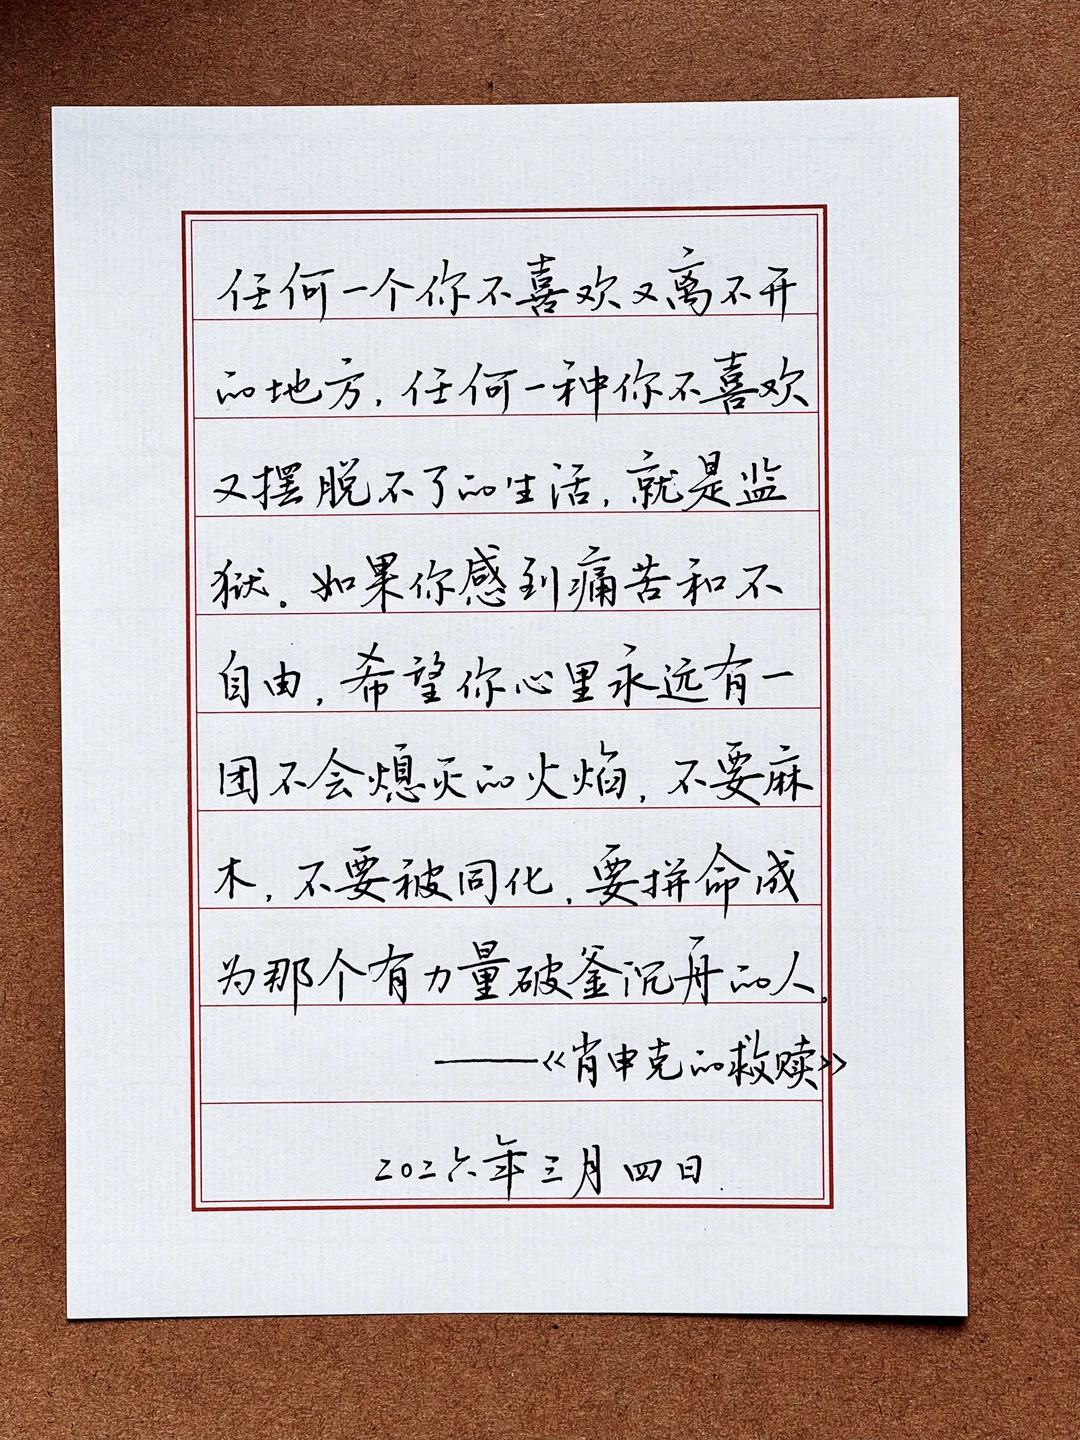 任何一个你不喜欢又离不开
的地方,任何一种你不喜欢
又摆脱不了的生活,就是监
狱。如果你感到痛苦和不
自由,希望你心里永远有一
团不会熄灭的火焰,不要麻
木,不要被同化,要拼命成
为那个有力量破釜沉舟的人。
——《肖申克的救赎》
二〇二六年三月四日